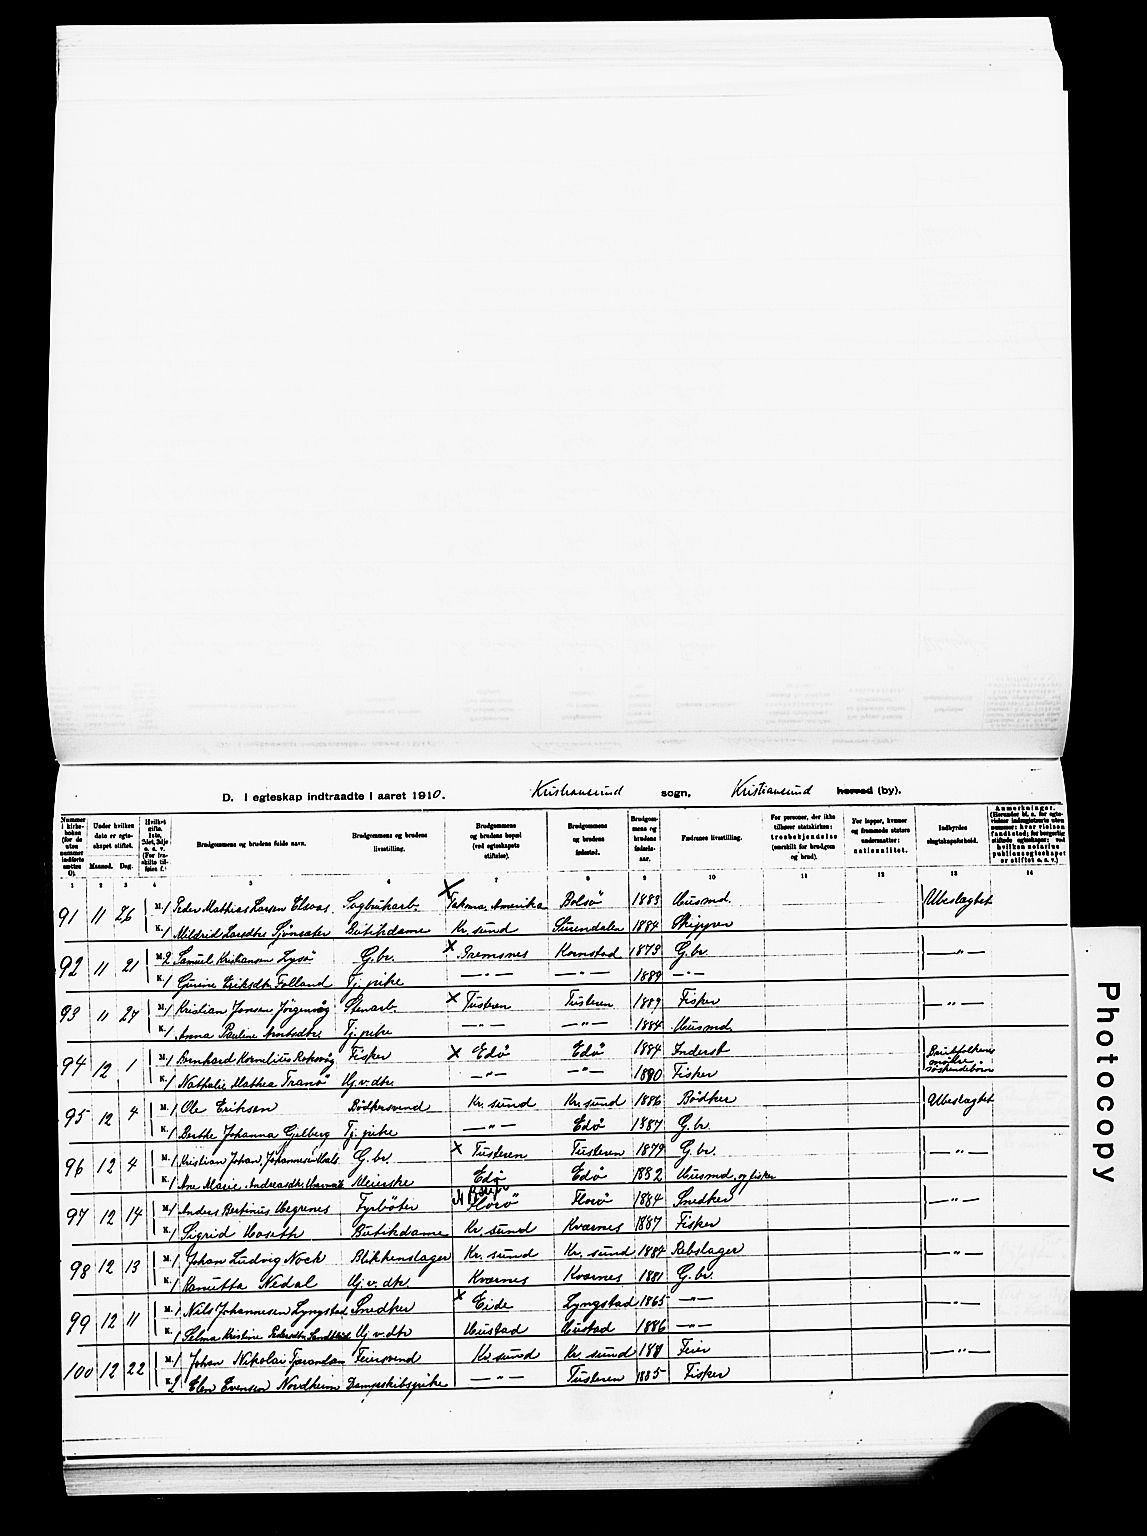 D. I egteskap indtraadte i aaret 1910. Kristiansund sogn, Kristiansund herred (by).
Nummer i kirkeboken (for de uten nummer indførte sættes 0).
Under hvilken dato er egteskapet stiftet.
Maaned. Dag.
Brudgommens og brudens fulde navn.
Brudgommens og brudens livsstilling.
Brudgommens og brudens bopæl (ved egteskapets stiftelse).
Brudgommens og brudens fødested.
Brudgommens og brudens fødselsaar.
Fædrenes livsstilling.
For personer, der ikke tilhører statskirken: trosbekjendelse (særskilt for brudgom og brud).
For lapper, kvæner og fremmede staters undersaatter: nationalitet.
Indbyrdes slegtskapsforhold.
Anmerkninger.
1 2 3 4 5 6 7 8 9 10 11 12 13 14
91 11 26 M. 1 Peder Mathias Larsen Elsaas Sagbrukarb. × Takoma, Amerika Bolsö 1883 Husmd. Ubeslagtet
K. 1 Mildrid Larsdtr Sjönsæter Butikdame Kr. sund Surendalen 1884 Skipper
92 11 21 M. 2 Samuel Kristiansen Lysö G.br. × Bremsnes Kornstad 1873 G.br. —"—
K. 1 Gurine Eriksdtr Folland Tj. pike —"— —"— 1889 —"—
93 11 27 M. 1 Kristian Jansen Jörgenvåg Stenarb. × Tusteren Tusteren 1889 Fisker —"—
K. 1 Anna Pauline Tj. pike —"— —"— 1884 Husmd.
94 12 1 M. 1 Bernhard Kornelius Rokvåg Fisker × Edö Edö 1884 Inderst Brudefolkene søskendebörn
K. 1 Nathalie Mathea Tranö Hj. v. dtr. —"— —"— 1890 Fisker
95 12 4 M. 1 Ole Eriksen Bödkersvend Kr. sund Kr. sund 1886 Bödker Ubeslagtet
K. 1 Berthe Johanna Gjelberg Tj. pike —"— Edö 1887 G.br.
96 12 4 M. 1 Kristian Johan Johannesen Hals G.br. × Tusteren Tusteren 1879 G.br. —"—
K. 1 Ane Marie Andreasdtr Meierske Edö Edö 1882 Husmd. og fisker
97 12 14 M. 1 Anders Bertinus Hegrenes Fyrböter Florö Florö 1884 Snedker —"—
K. 1 Sigrid Hoseth Butikdame Kr. sund Kvernes 1887 Fisker
98 12 13 M. 1 Johan Ludvig Nock Blikkenslager Kr. sund Kr. sund 1884 Rebslager —"—
K. 1 Hanutta Nedal Hj. v. dtr. Kvernes Kvernes 1881 G.br.
99 12 11 M. 1 Nils Johannesen Lyngstad Snedker × Eide Lyngstad 1865 —"— —"—
K. 1 Selma Kristine Pedersdtr Hj. v. dtr Hustad Hustad 1886 —"—
100 12 22 M. 1 Johan Nikolai Feiersvend Kr. sund Kr. sund Feier —"—
K. 2 Elen Evensen Nordheim Dampskibspike —"— Tusteren 1885 Fisker
Photocopy